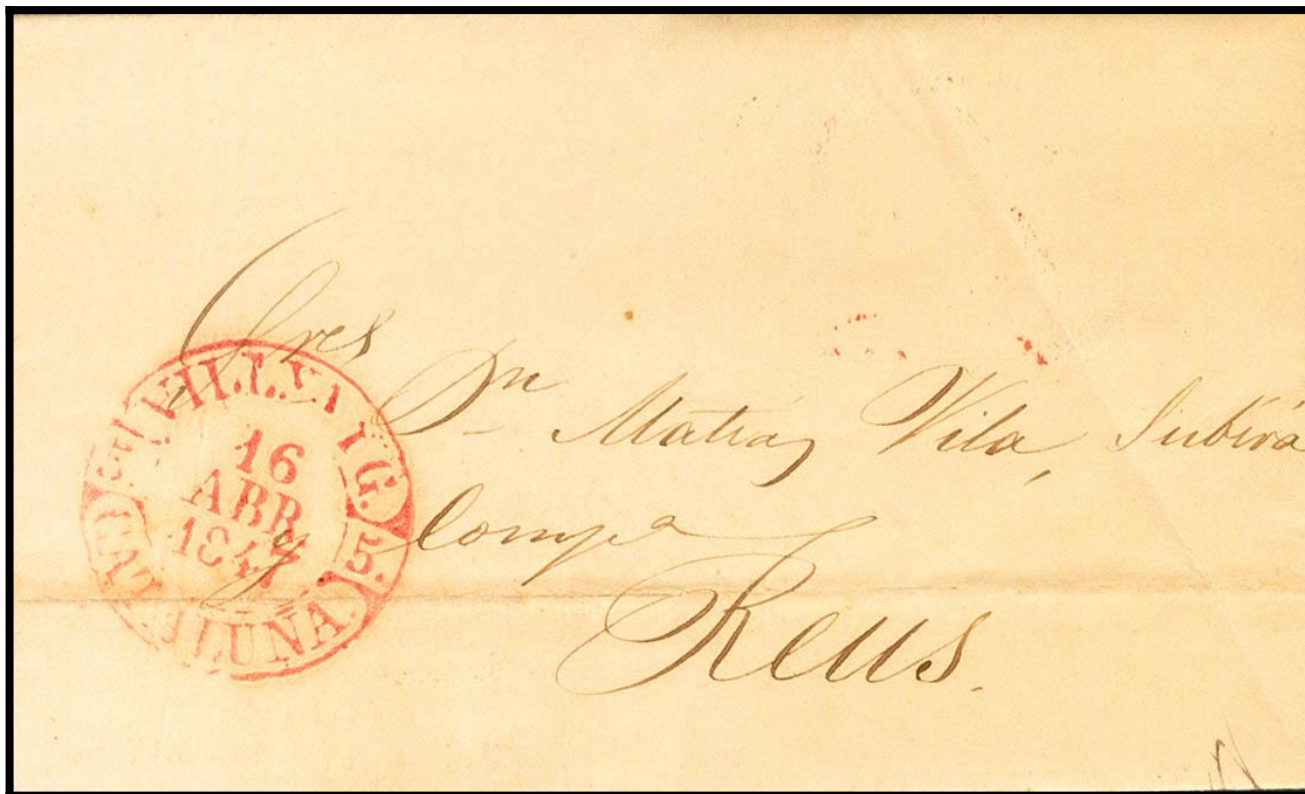 Sres
Dn Matias Vila, Subirá
y Compa
Reus.
16
ABR
1847
5.
CATALUÑA.